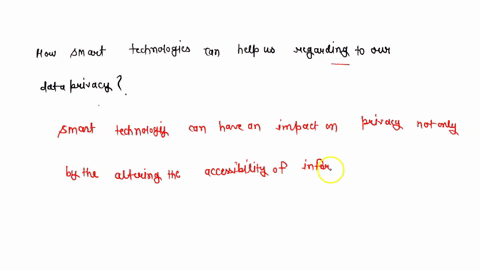 How smart technologies can help us regarding to our
data privacy?
smart technology can have an impact on privacy not only
by the altering the accessibility of infor